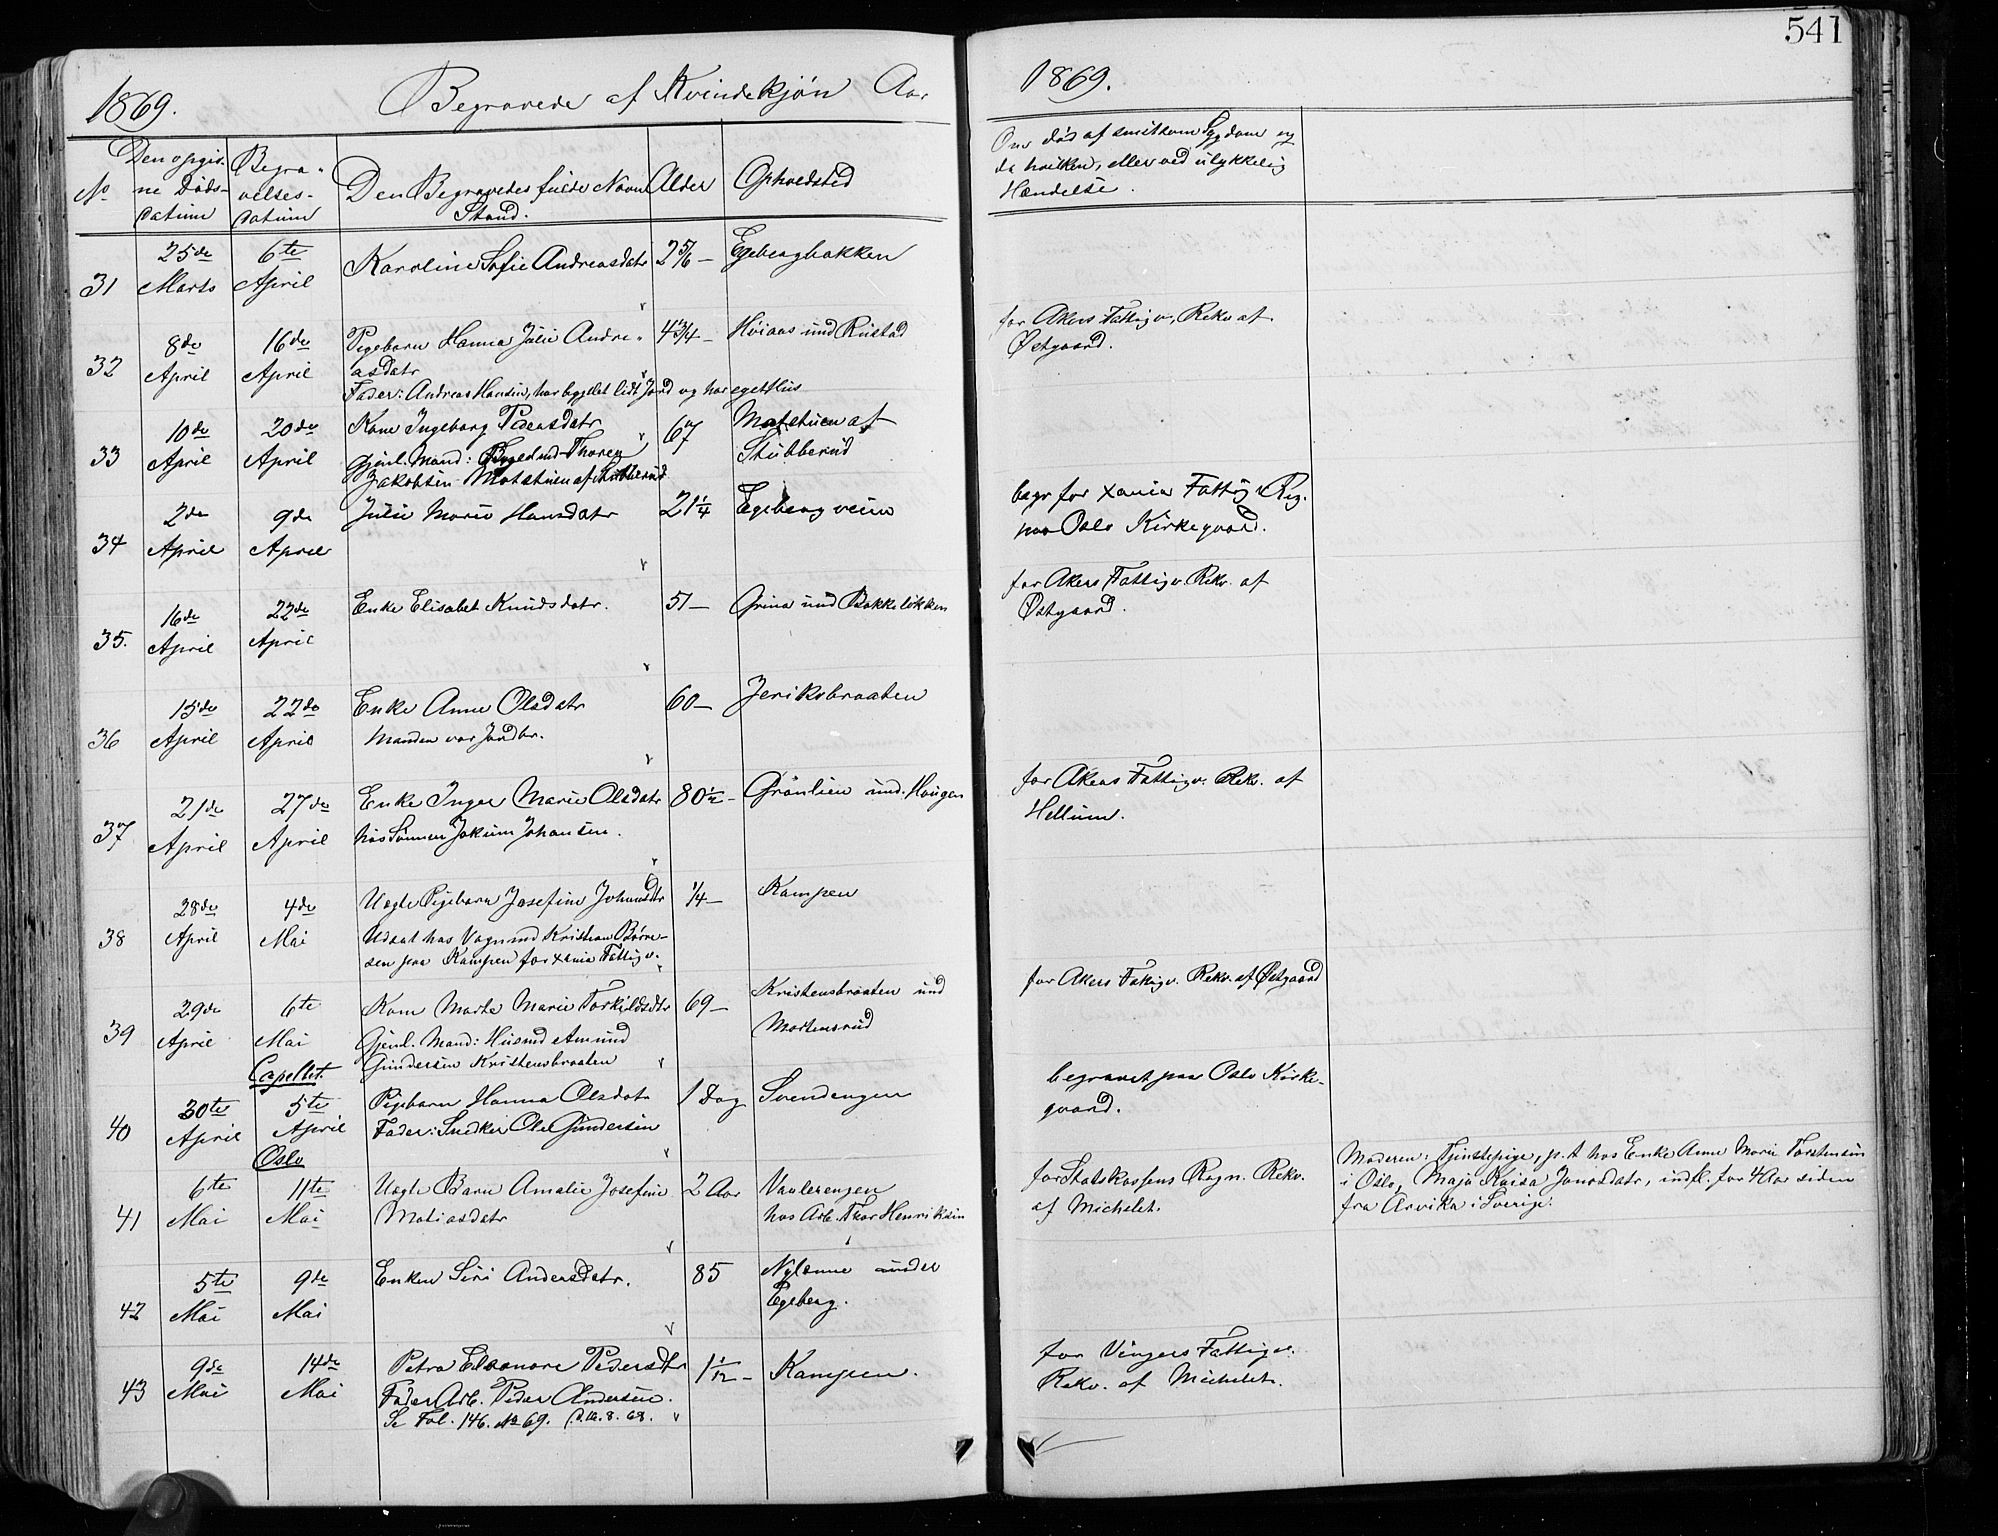 541
1869. Begravede af Kvindekjøn Aar 1869.
No
Den opgiv-
ne Døds-
datum
Begra-
velses-
datum
Den Begravedes fulde Navn
Stand.
Alder
Opholdsted
Om død af smitsom Sygdom og
da hvilken, eller ved ulykkelig
Hændelse.
31 25de Marts 6te April Karoline Sofie Andreasdatr 2 5/6 — Egebergbakken
32 8de April 16de April Pigebarn Hanna Julie Andre-
asdatr 4 3/4 — Høiaas und Rustad
Fader: Andreas Hansen, har bygslet lidt Jord og har eget Hus
for Akers Fattigv., Rekv. af
Østgaard.
33 10de April 20de April Kone Ingeborg Paasdatr 67 Matstuen af
Stubberud
Gjenl. Mand: Thoren
Jakobsen Matstuen af Stubberud
34 2de April 9de April Julie Marie Hansdatr 21 1/4 Egebergveien
begr for Xania Fattigv Reg.
paa Oslo Kirkegaard.
35. 16de April 22de April Enke Elisabet Knudsdatr. 51 — Grina und Bakkeløkken
for Akers Fattigv. Rekv. af
Østgaard.
36 15de April 22de April Enke Anne Olsdatr 60 — Jerikobraaten
Manden var Jordbr.
37 21de April 27de April Enke Inger Marie Olsdatr 80 1/2 — Grønlien und. Haugen
hos Sønnen Jokum Johansen.
for Akers Fattigv. Rekv. af
Hellum.
38 28de April 4de Mai Uægte Pigebarn Josefine Johansdtr 1/4 — Kampen
Udsat hos Vognmd Kristian Børre-
sen paa Kampen for Xania Fattigv.
39 29de April 6te Mai Kone Marte Marie Torkildsdtr 69 — Kristensbraaten und
Mortensrud
Gjenl. Mand: Husmd Amund
Gundersen Kristensbraaten
Capellet.
for Akers Fattigv. Rekv. af Østgaard
40 30te April 5te April Pigebarn Hanna Olsdatr 1 Dag Svendengen
Fader: Snedker Ole Gundersen
Oslo
begravet paa Oslo Kirke-
gaard.
41 6te Mai 11te Mai Uægte Barn Amalie Josefine
Matiasdatr 2 Aar Vaalerengen
hos Arb. Thor Henriksen
for Statskassens Regn. Rekv.
af Michelet.
Moderen: Tjenestepige, p.t. hos Enke Anne Marie Torstensen
i Oslo, Maja Kaisa Jonasdatr, indfl. for 4 Aar siden
fra Arvika i Sverige.
42 5te Mai 9de Mai Enken Siri Andersdatr. 85 Nylænne under
Egeberg.
43 9de Mai 14de Mai Petra Eleonore Pedersdtr 1 1/12 — Kampen.
Fader Arb. Peder Andersen.
Se Fol. 146. No 69.
for Vingers Fattigv.
Rekv. af Michelet.